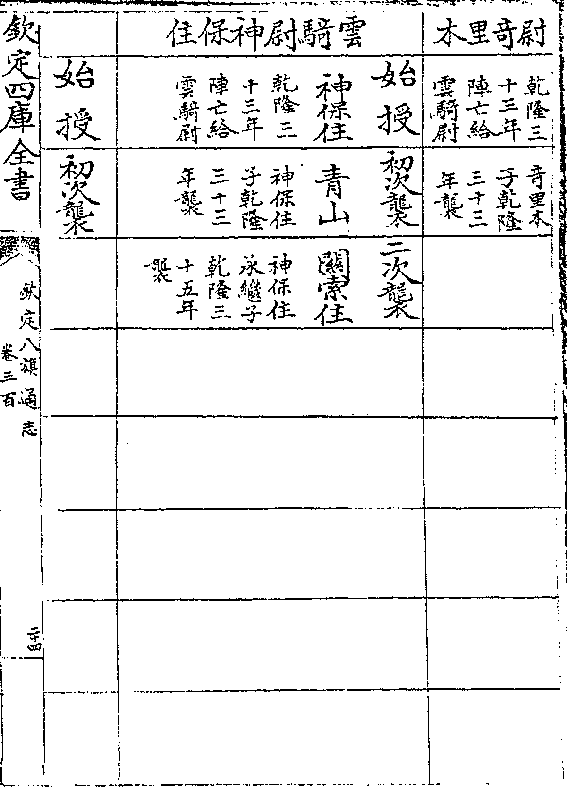 尉奇里木
乾隆三
十三年
陣亡給
雲騎尉
奇里木
子乾隆
三十三
年襲
雲騎尉神保住
始授
初次襲
二次襲
神保住
乾隆三
十三年
陣亡給
雲騎尉
青山
神保住
子乾隆
三十三
年襲
關索住
神保住
承繼子
乾隆三
十五年
襲
始授
初次襲
欽定四庫全書
欽定八旗通志
卷三百
二十四